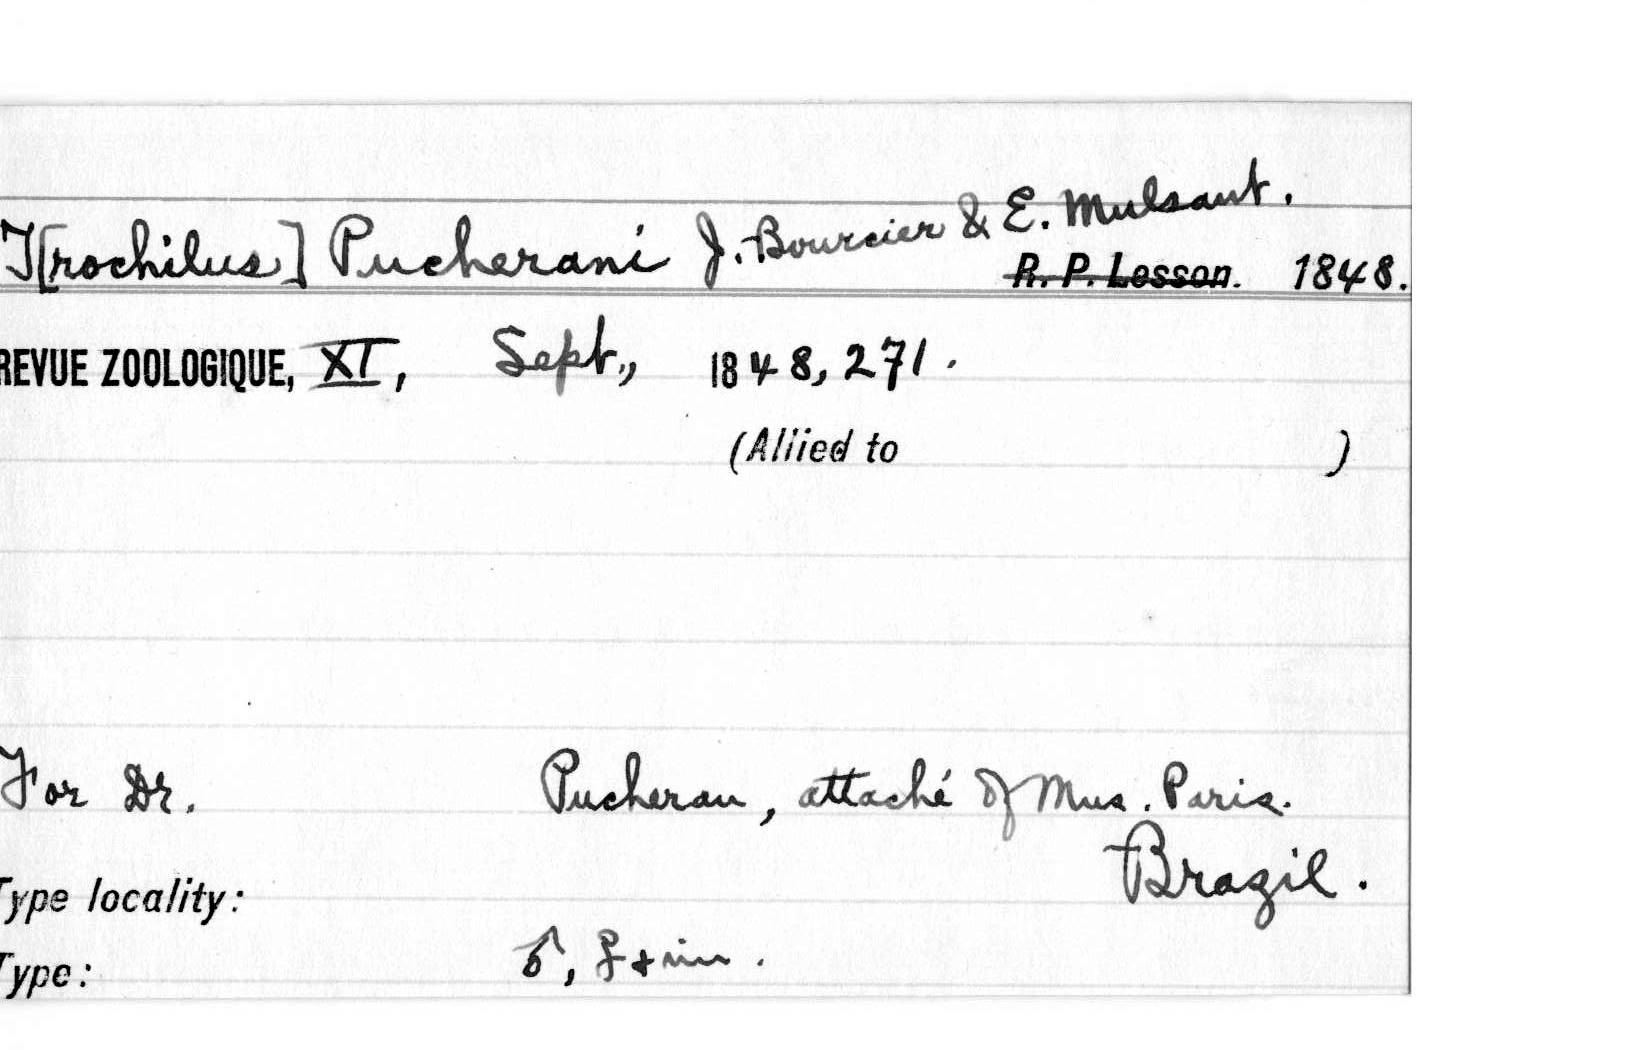 T[rochilus] Pucherani J. Bourcier & E. Mulsant.
R. P. Lesson. 1848.
REVUE ZOOLOGIQUE, XI, Sept., 1848, 271.
(Allied to )
For Dr. Pucheran, attaché of Mus. Paris.
Brazil.
Type locality:
Type: ♂, ♀ + im.